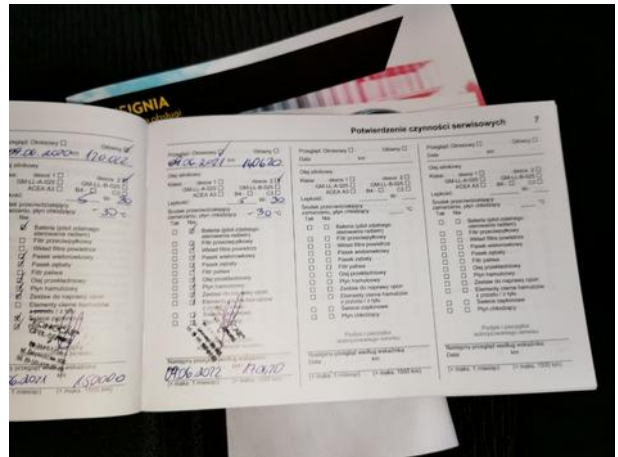 SIGNIA
Potwierdzenie czynności serwisowych 7
Główny
09.06.2020 120.002
Olej silnikowy
dexos 1 dexos 2
GM-LL-A-025 GM-LL-B-025
ACEA A3 B4 C3
5 30
Środek przeciwdziałający
zamarzaniu, płyn chłodzący
- 30 °C
Nie
Bateria (pilot zdalnego
sterowania radiem)
Filtr przeciwpyłkowy
Wkład filtra powietrza
Pasek wielorowkowy
Pasek zębaty
Filtr paliwa
Olej przekładniowy
Płyn hamulcowy
Zestaw do naprawy opon
Elementy cierne hamulców
z przodu / z tyłu
Świece zapłonowe
2021 150000
(+ maks. 1 miesiąc) (+ maks. 1500 km)
Przegląd: Okresowy Główny
09.06.2021 km 140620
Olej silnikowy
Klasa: dexos 1 dexos 2
GM-LL-A-025 GM-LL-B-025
ACEA A3 B4 C3
Lepkość: 5 30
Środek przeciwdziałający
zamarzaniu, płyn chłodzący
- 30 °C
Tak Nie
Bateria (pilot zdalnego
sterowania radiem)
Filtr przeciwpyłkowy
Wkład filtra powietrza
Pasek wielorowkowy
Pasek zębaty
Filtr paliwa
Olej przekładniowy
Płyn hamulcowy
Zestaw do naprawy opon
Elementy cierne hamulców
Następny przegląd według wskaźnika
09.06.2022 170620
(+ maks. 1 miesiąc) (+ maks. 1500 km)
Przegląd: Okresowy Główny
Data km
Olej silnikowy
Klasa: dexos 1 dexos 2
GM-LL-A-025 GM-LL-B-025
ACEA A3 B4 C3
Lepkość:
Środek przeciwdziałający
zamarzaniu, płyn chłodzący
°C
Tak Nie
Bateria (pilot zdalnego
sterowania radiem)
Filtr przeciwpyłkowy
Wkład filtra powietrza
Pasek wielorowkowy
Pasek zębaty
Filtr paliwa
Olej przekładniowy
Płyn hamulcowy
Zestaw do naprawy opon
Elementy cierne hamulców
z przodu / z tyłu
Świece zapłonowe
Płyn chłodzący
Podpis i pieczątka
autoryzowanego serwisu
Następny przegląd według wskaźnika
Data km
(+ maks. 1 miesiąc) (+ maks. 1500 km)
Przegląd: Okresowy Główny
Data km
Olej silnikowy
Klasa: dexos 1 dexos 2
GM-LL-A-025 GM-LL-B-025
ACEA A3 B4 C3
Lepkość:
Środek przeciwdziałający
zamarzaniu, płyn chłodzący
°C
Tak Nie
Bateria (pilot zdalnego
sterowania radiem)
Filtr przeciwpyłkowy
Wkład filtra powietrza
Pasek wielorowkowy
Pasek zębaty
Filtr paliwa
Olej przekładniowy
Płyn hamulcowy
Zestaw do naprawy opon
Elementy cierne hamulców
z przodu / z tyłu
Świece zapłonowe
Płyn chłodzący
Podpis i pieczątka
autoryzowanego serwisu
Następny przegląd według wskaźnika
Data km
(+ maks. 1 miesiąc) (+ maks. 1500 km)